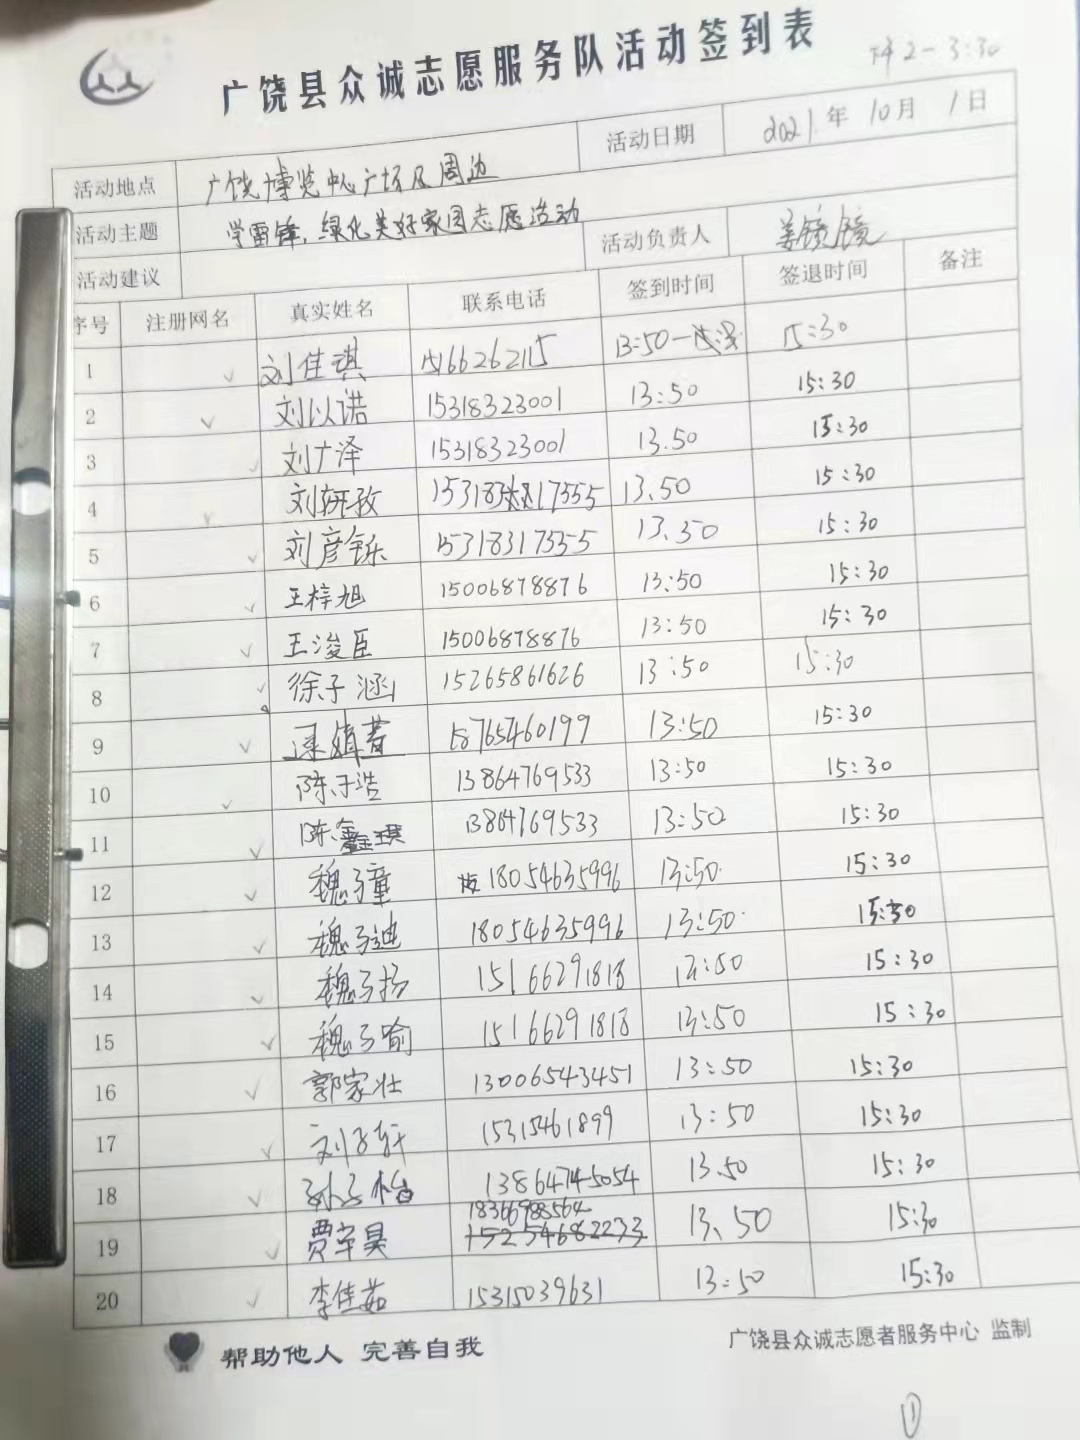 广饶县众诚志愿服务队活动签到表
下午2-3:30
活动地点 广饶博览中心广场及周边 活动日期 2021年10月1日
活动主题 学雷锋,绿化美好家园志愿活动
活动建议 活动负责人 姜镜镜
序号 注册网名 真实姓名 联系电话 签到时间 签退时间 备注
1 ✓ 刘佳琪 15166262115 13:50 15:30
2 ✓ 刘以诺 15318323001 13:50 15:30
3 ✓ 刘广泽 15318323001 13.50 15:30
4 ✓ 刘轩孜 15318317555 13.50 15:30
5 ✓ 刘彦铄 15318317555 13.50 15:30
6 ✓ 王梓旭 15006878876 13:50 15:30
7 ✓ 王浚臣 15006878876 13:50 15:30
8 ✓ 徐子涵 15265861626 13:50 15:30
9 ✓ 18765460199 13:50 15:30
10 ✓ 陈子浩 13864769533 13:50 15:30
11 ✓ 陈鑫琪 13864769533 13:50 15:30
12 ✓ 魏子童 18054635996 13:50 15:30
13 ✓ 魏子迪 18054635996 13:50 15:30
14 ✓ 魏子扬 15166291818 13:50 15:30
15 ✓ 魏子喻 15166291818 13:50 15:30
16 ✓ 郭家壮 13006543451 13:50 15:30
17 ✓ 刘子轩 15315461899 13:50 15:30
18 ✓ 孙子怡 13864745054 13.50 15:30
19 ✓ 贾宇昊 18366988564 15254682233 13.50 15:30
20 ✓ 李佳茹 15315039631 13:50 15:30
帮助他人 完善自我
广饶县众诚志愿者服务中心 监制
①